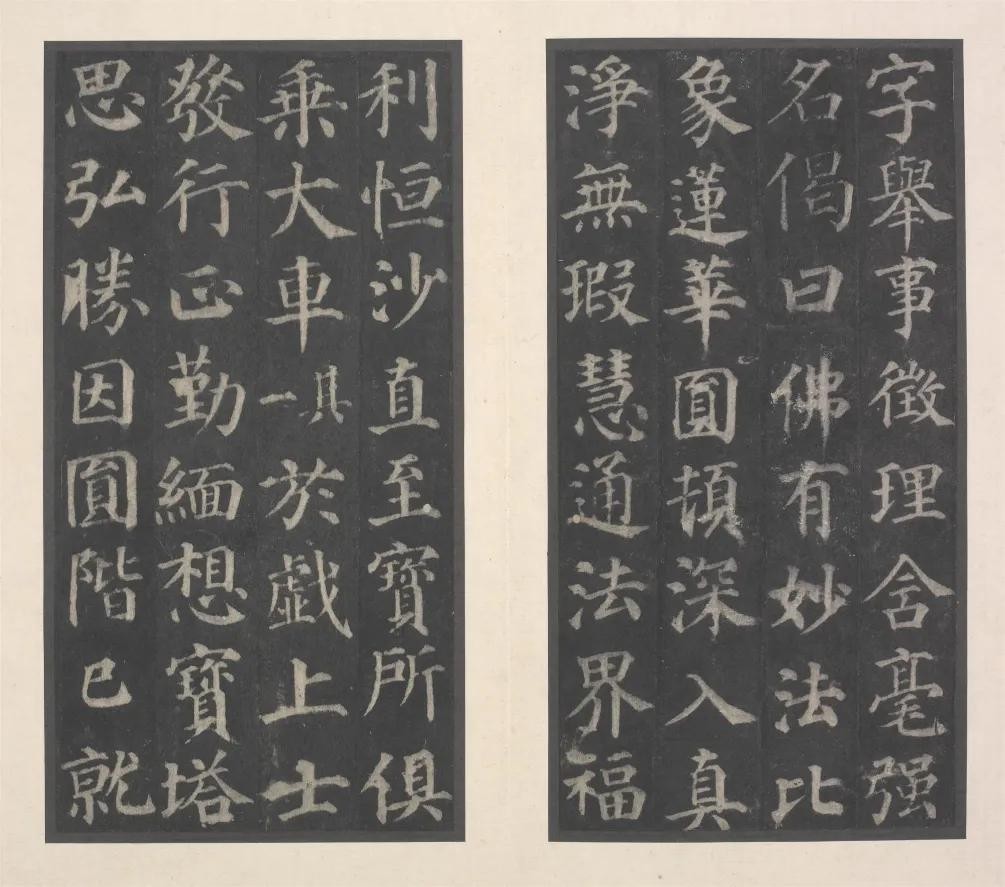 字舉事徵理含毫强
名偈曰佛有妙法比
象蓮華圓頓深入真
淨無瑕慧通法界福
利恒沙直至寶所俱
乘大車其一於戲上士
發行正勤緬想寶塔
思弘勝因圓階已就